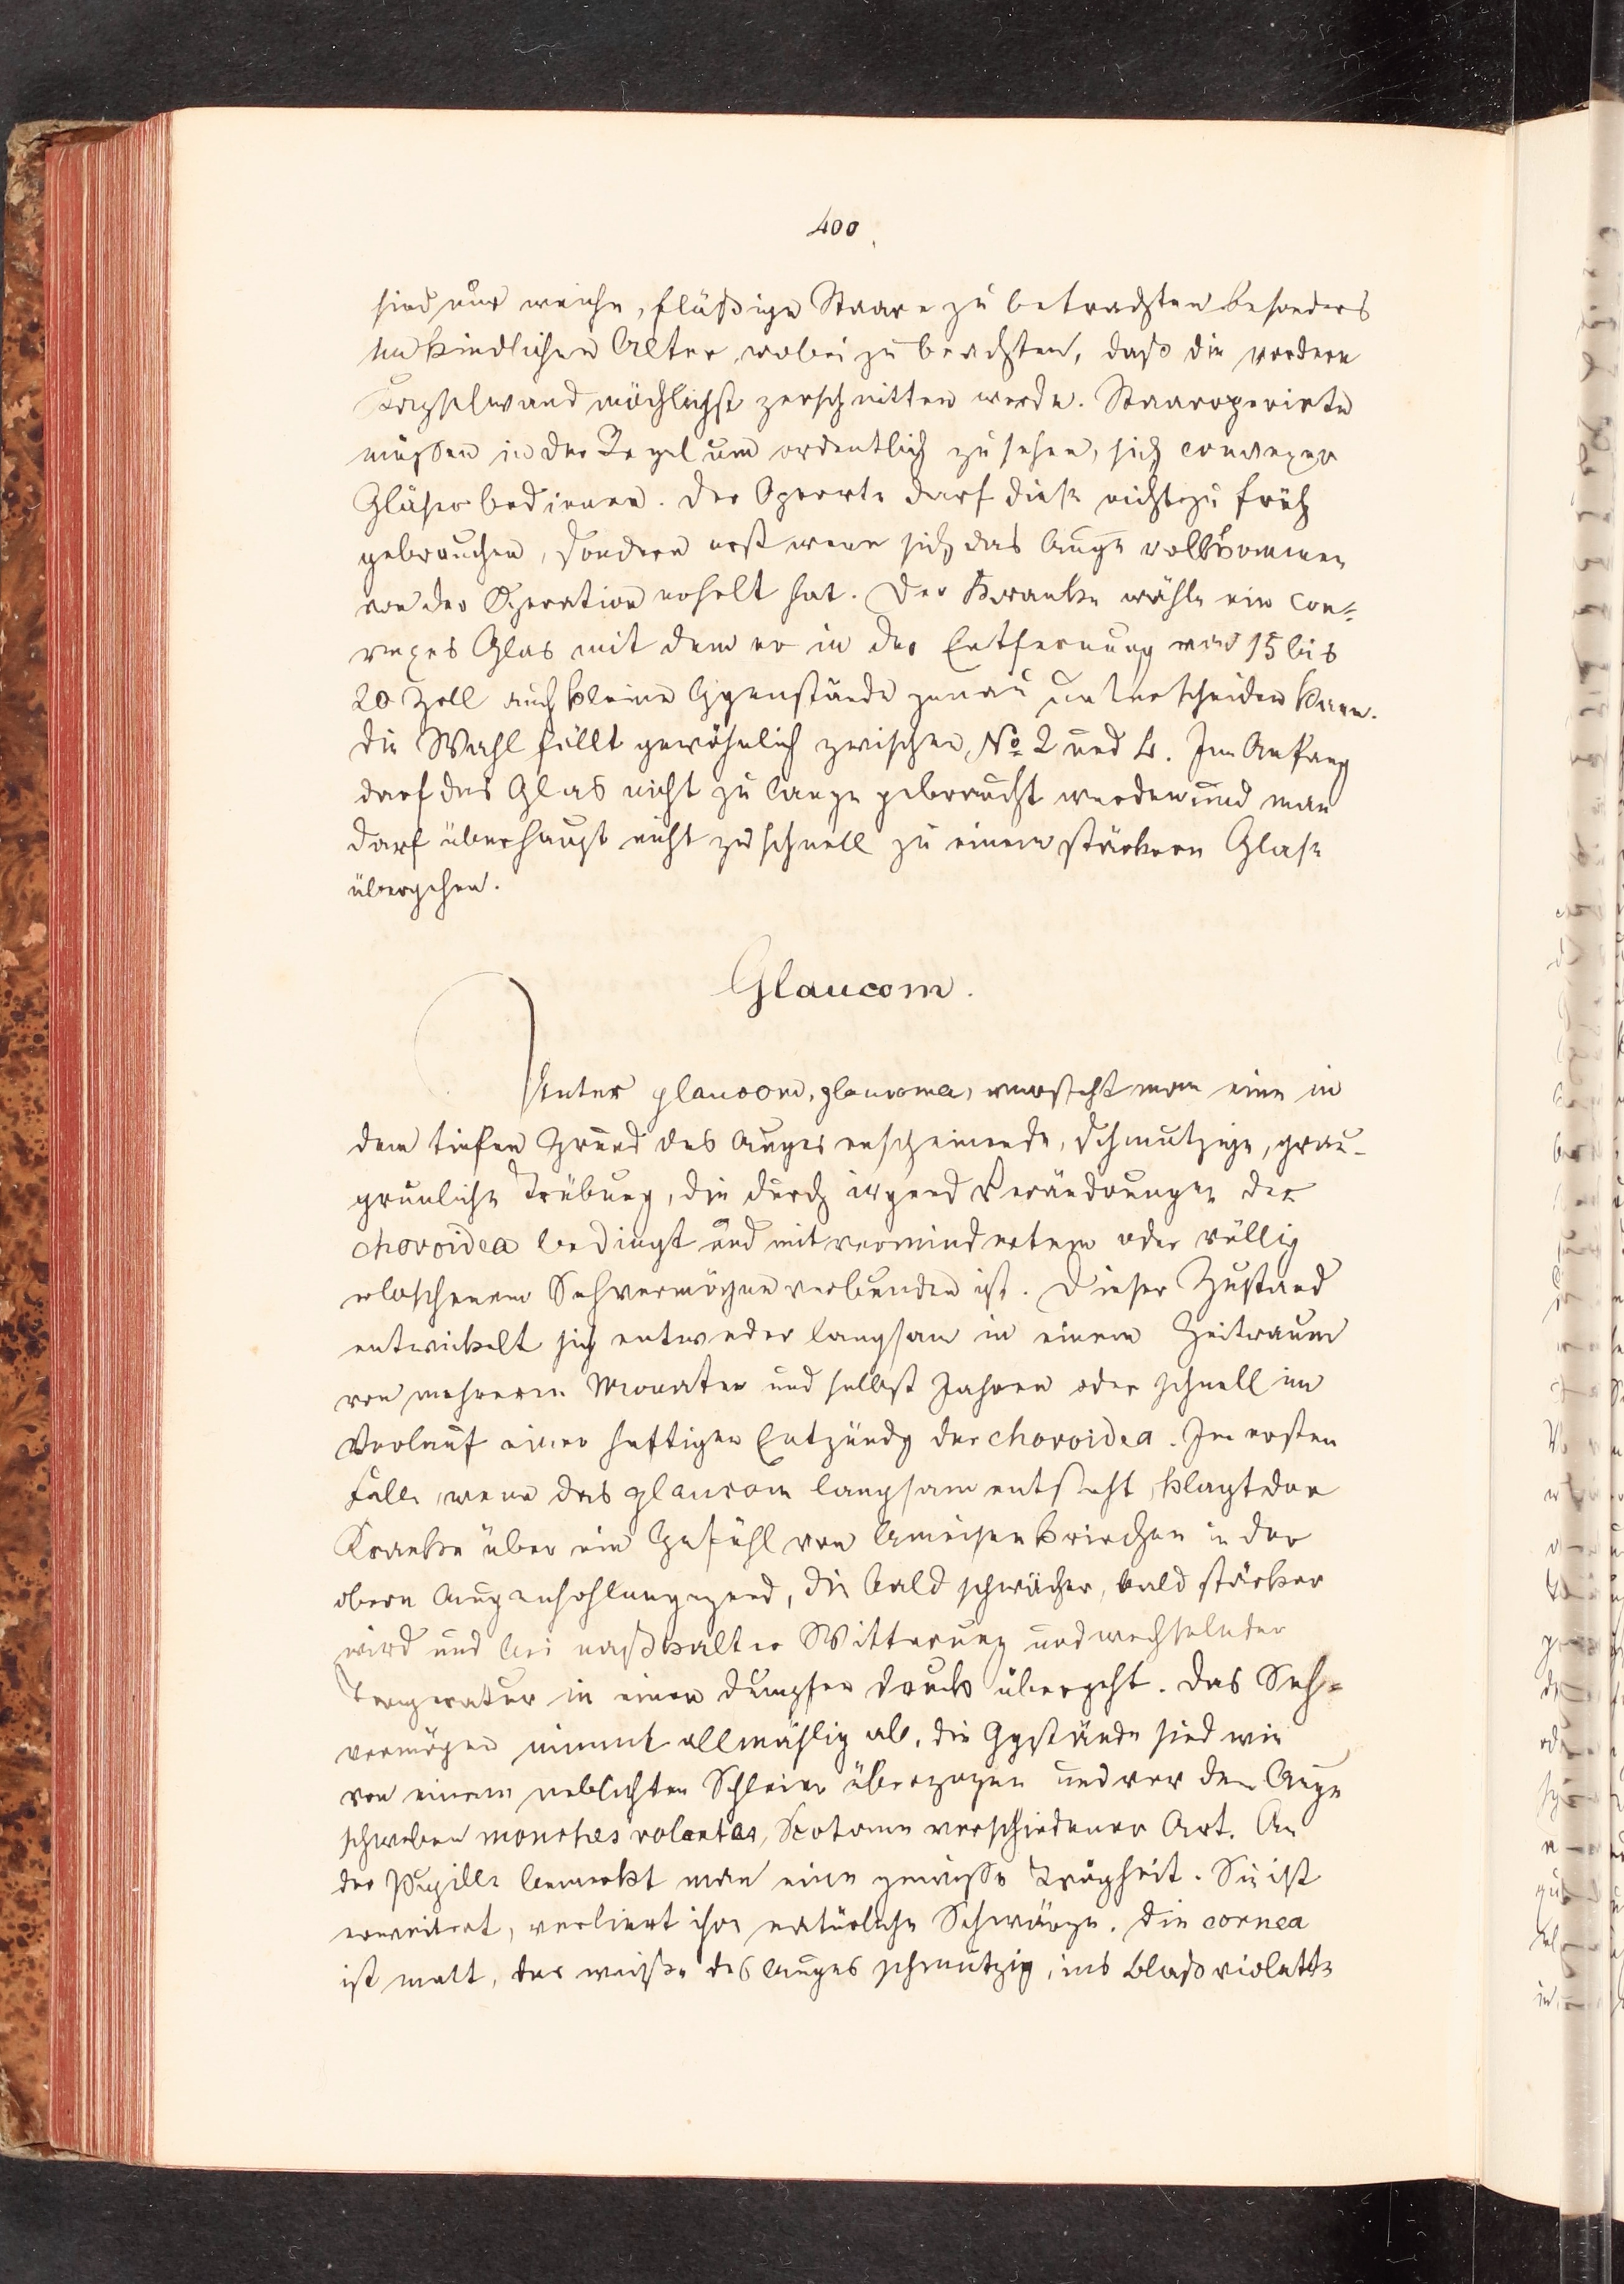 400
sind nur weiche, flüßige Staare zu betrachten besonders
im kindlichen Alter, wobei zu beachten, daß die vordere
Kapselwand möchlichst zerschnitten werde. Staaroperirte
müßen in der Regel um ordentlich zu sehen, sich convexer
Gläser bedienen. Der Operirte darf diese nicht zu früh
gebrauchen, sondern erst wenn sich das Auge vollkommen
von der Operation erholt hat. Der Kranke wähle ein con=
vexes Glas mit dem er in der Entfernung von 15 bis
20 Zoll auch kleine Ggenstände genau unterscheiden kann.
Die Wahl fällt gewöhnlich zwischen No 2 und 4. Im Anfang
darf das Glas nicht zu lange gebraucht werden und man
darf überhaupt nicht zu schnell zu einem stärkern Glase
übergehen.
Glaucom.
Unter glaucom, glaucoma, versteht man eine in
dem tiefen Grund des Auges erscheinende, schmutzige, grau-
grunliche Trübung, die durch irgend Verändrungen der
choroidea bedingt und mit vermindertem oder völlig
erloschenem Sehvermögen verbunden ist. Dieser Zustand
entwickelt sich entweder langsam in einem Zeitraum
von mehreren Monaten und selbst Jahren oder schnell im
Verlauf einer heftigen Entzündg der choroidea. Im ersten
Falle, wenn das glaucom langsam entsteht, klagt der
Kranke über ein Gefühl von Ameisenkriechen in der
obern Augenhohlengegend, die bald schwächer, bald stärker
wird und bei naßkalter Witterung und wechselnder
Temperatur in einen dumpfen Druck übergeht. Das Seh=
vermögen nimmt allmählig ab, die Ggstände sind wie
von einem neblichten Schleier überzogen und vor dem Auge
schweben mouches volantes, Scotome verschiedener Art. An
der Pupille bemerkt man eine gewisse Trägheit. Sie ist
erweitert, verliert ihre natürliche Schwärze. Die cornea
ist matt, das weiße des Auges schmutzig, ins blaßviolette